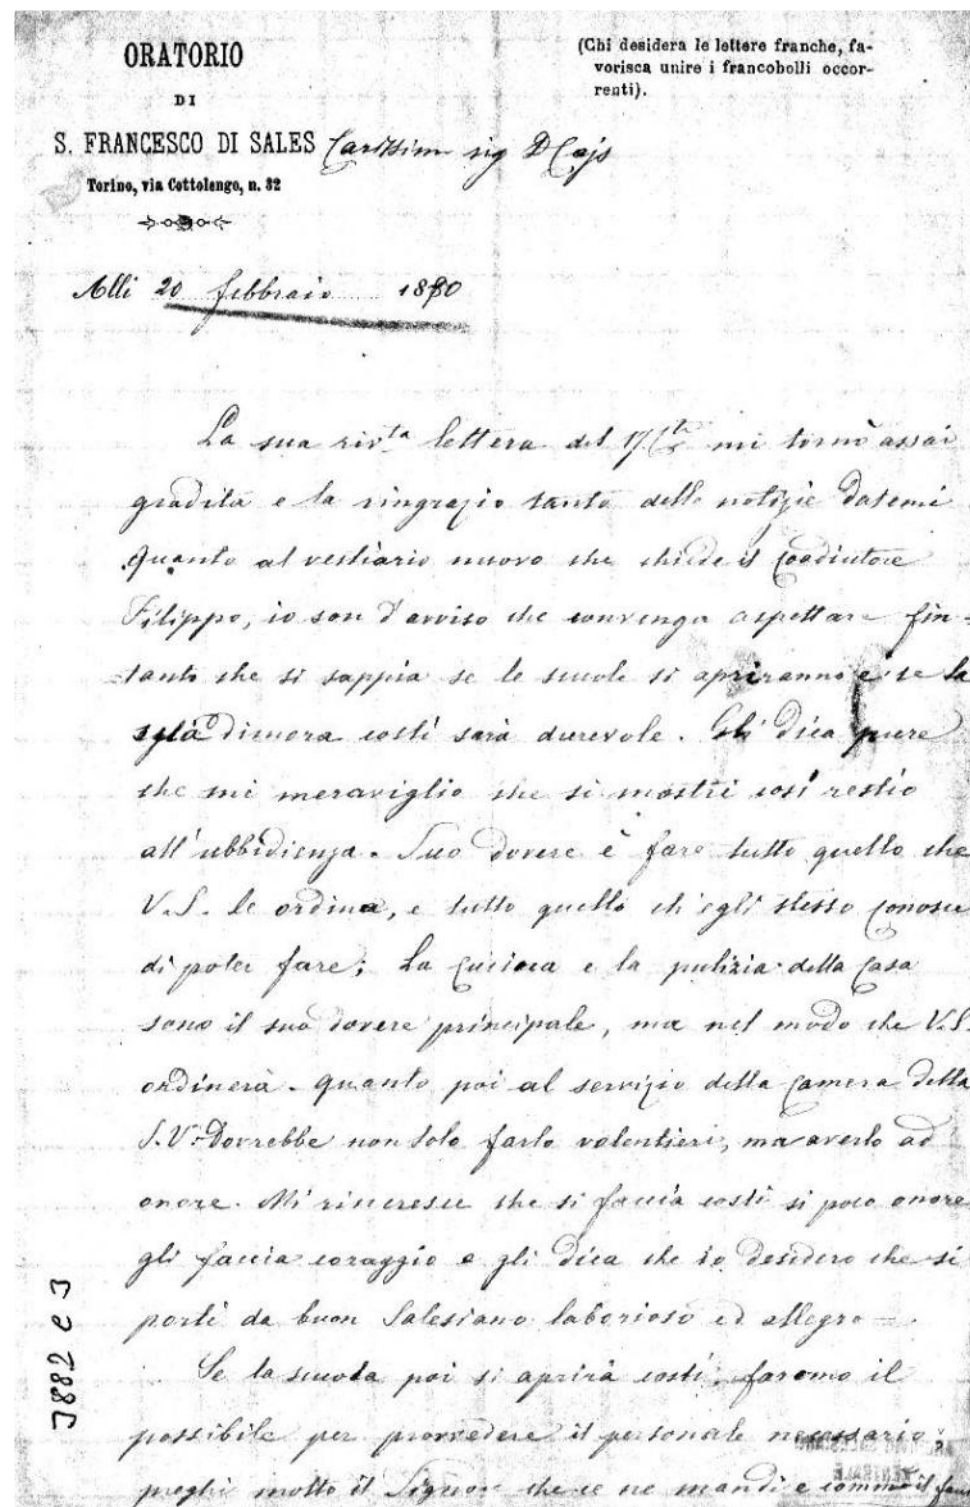 ORATORIO
DI
S. FRANCESCO DI SALES
Torino, via Cottolengo, n. 32
(Chi desidera le lettere franche, fa-
vorisca unire i francobolli occor-
renti).
Carissimo sig D Cays
Alli 20 febbraio 1880
La sua riv.ta lettera del 17 mi tornò assai
gradita e la ringrazio tanto delle notizie datemi
Quanto al vestiario nuovo che chiede il Coadiutore
Filippo, io son d'avviso che convenga aspettare fin=
tanto che si sappia se le scuole si apriranno e se la
dimora costì sarà durevole. Gli dica pure
che mi meraviglio che si mostri così restio
all'ubbidienza. Suo dovere è fare tutto quello che
V.S. le ordina, e tutto quello ch'egli stesso conosce
di poter fare; La cucina e la pulizia della casa
sono il suo dovere principale, ma nel modo che V.S.
ordinerà. Quanto poi al servizio della camera della
S.V. Dovrebbe non solo farlo volentieri, ma averlo ad
onore. Mi rincresce che si faccia costì si poco onore
gli faccia coraggio e gli dica che io desidero che si
porti da buon Salesiano laborioso ed allegro =
Se la scuola poi si aprirà costì, faremo il
possibile per provvedere il personale necessario:
preghi molto il Signore che ce ne mandi e
3882 e 3